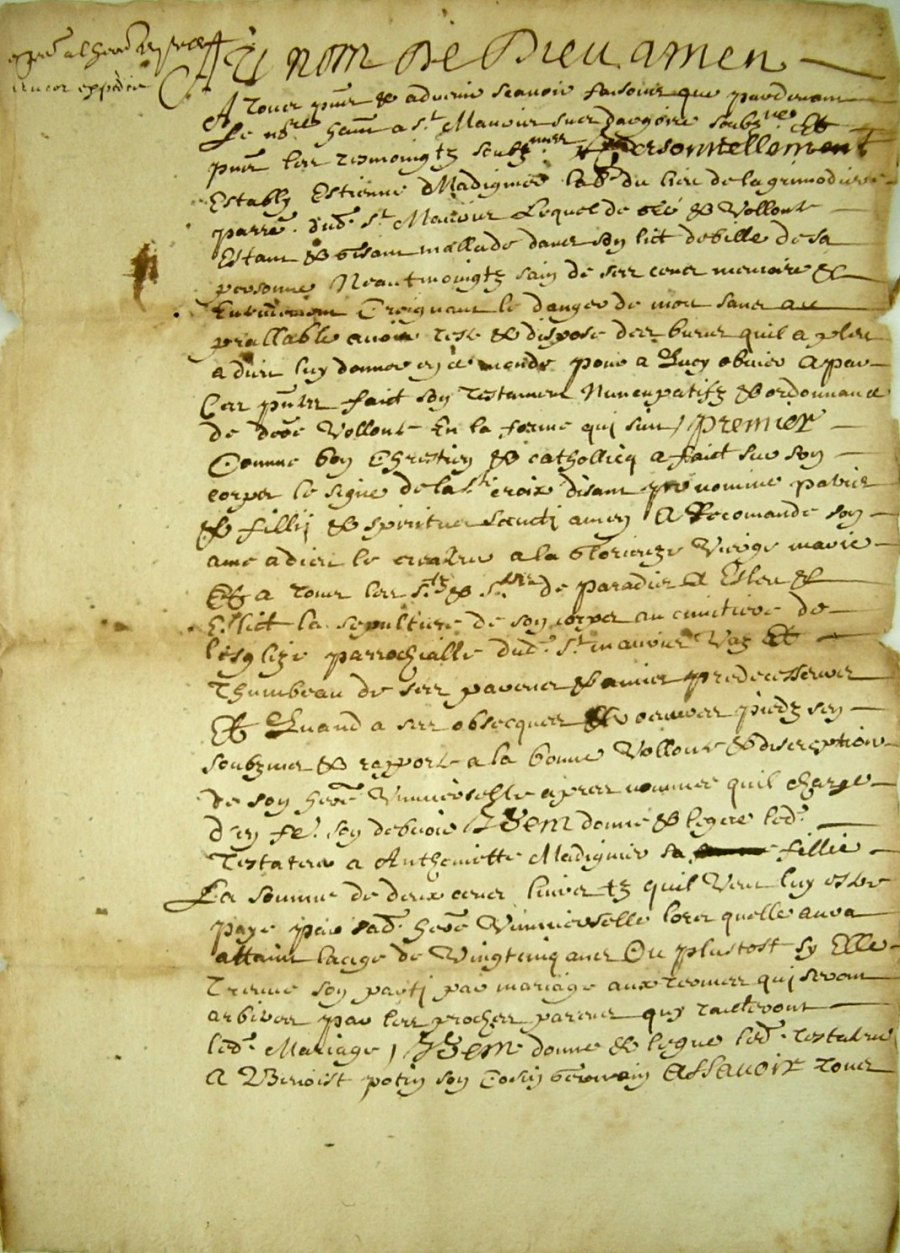 Au nom de Dieu amen
A tous pnts & advenir scavoir faisons que pardevant
Le no.re
pnts les tesmoingtz soubz nmez Personnellement
Estably Estienne Madignier lab.r du lieu de la grimodiere
parre. dud. St Maurice Lequel de gré & Vollonté
Estant & gisant mallade dans son lict debille de sa
personne Neantmoingtz sain de ses cens memoire &
Entendement Creignant le danger de mort sans au
prallable avoir testé & disposé des biens quil a pleu
a dieu luy donner en ce monde pour a Iceux obvier A par
Ces pntes faict son Testament Nuncupatifz & ordonnance
de dere Vollonté En la forme qui suit / Premier
Comme bon Chrestien & cathollicq a faict sur son
corps le signe de la Ste croix disant in nomine patris
& fillij & spiritus sancti amen A Recomandé son
ame a dieu le createur a la glorieuze Vierge marie
Et a tous les Stz & Stes de paradis A Esleu &
Eslict la sepulture de son corps au cimitiere de
lesglize parrochialle dud. St maurice Et
Thumbeau de ses parens & amis predecesseurs
Et Quand a ses obsecques & oeuvres piedz sen
soubzmet & rapporte a la bonne Vollonté & discreption
de son here Unniverselle apres nommee quil charge
d'en fe. son debvoir Item donne & legue led.
Testateur a Anthoinette Madignier sa fillie
La somme de deux cens livres tz quil Veut luy estre
payé par sad. here Unniverselle lors quelle aura
attaint laage de Vingtcinq ans Ou plustost sy Elle
Treuve son parti par mariage aux termes qui seront
arbitres par les proches parens quy traiteront
led. Mariage / Item donne & legue led. testateur
A Benoist potin son Cosin germain Assavoir tous